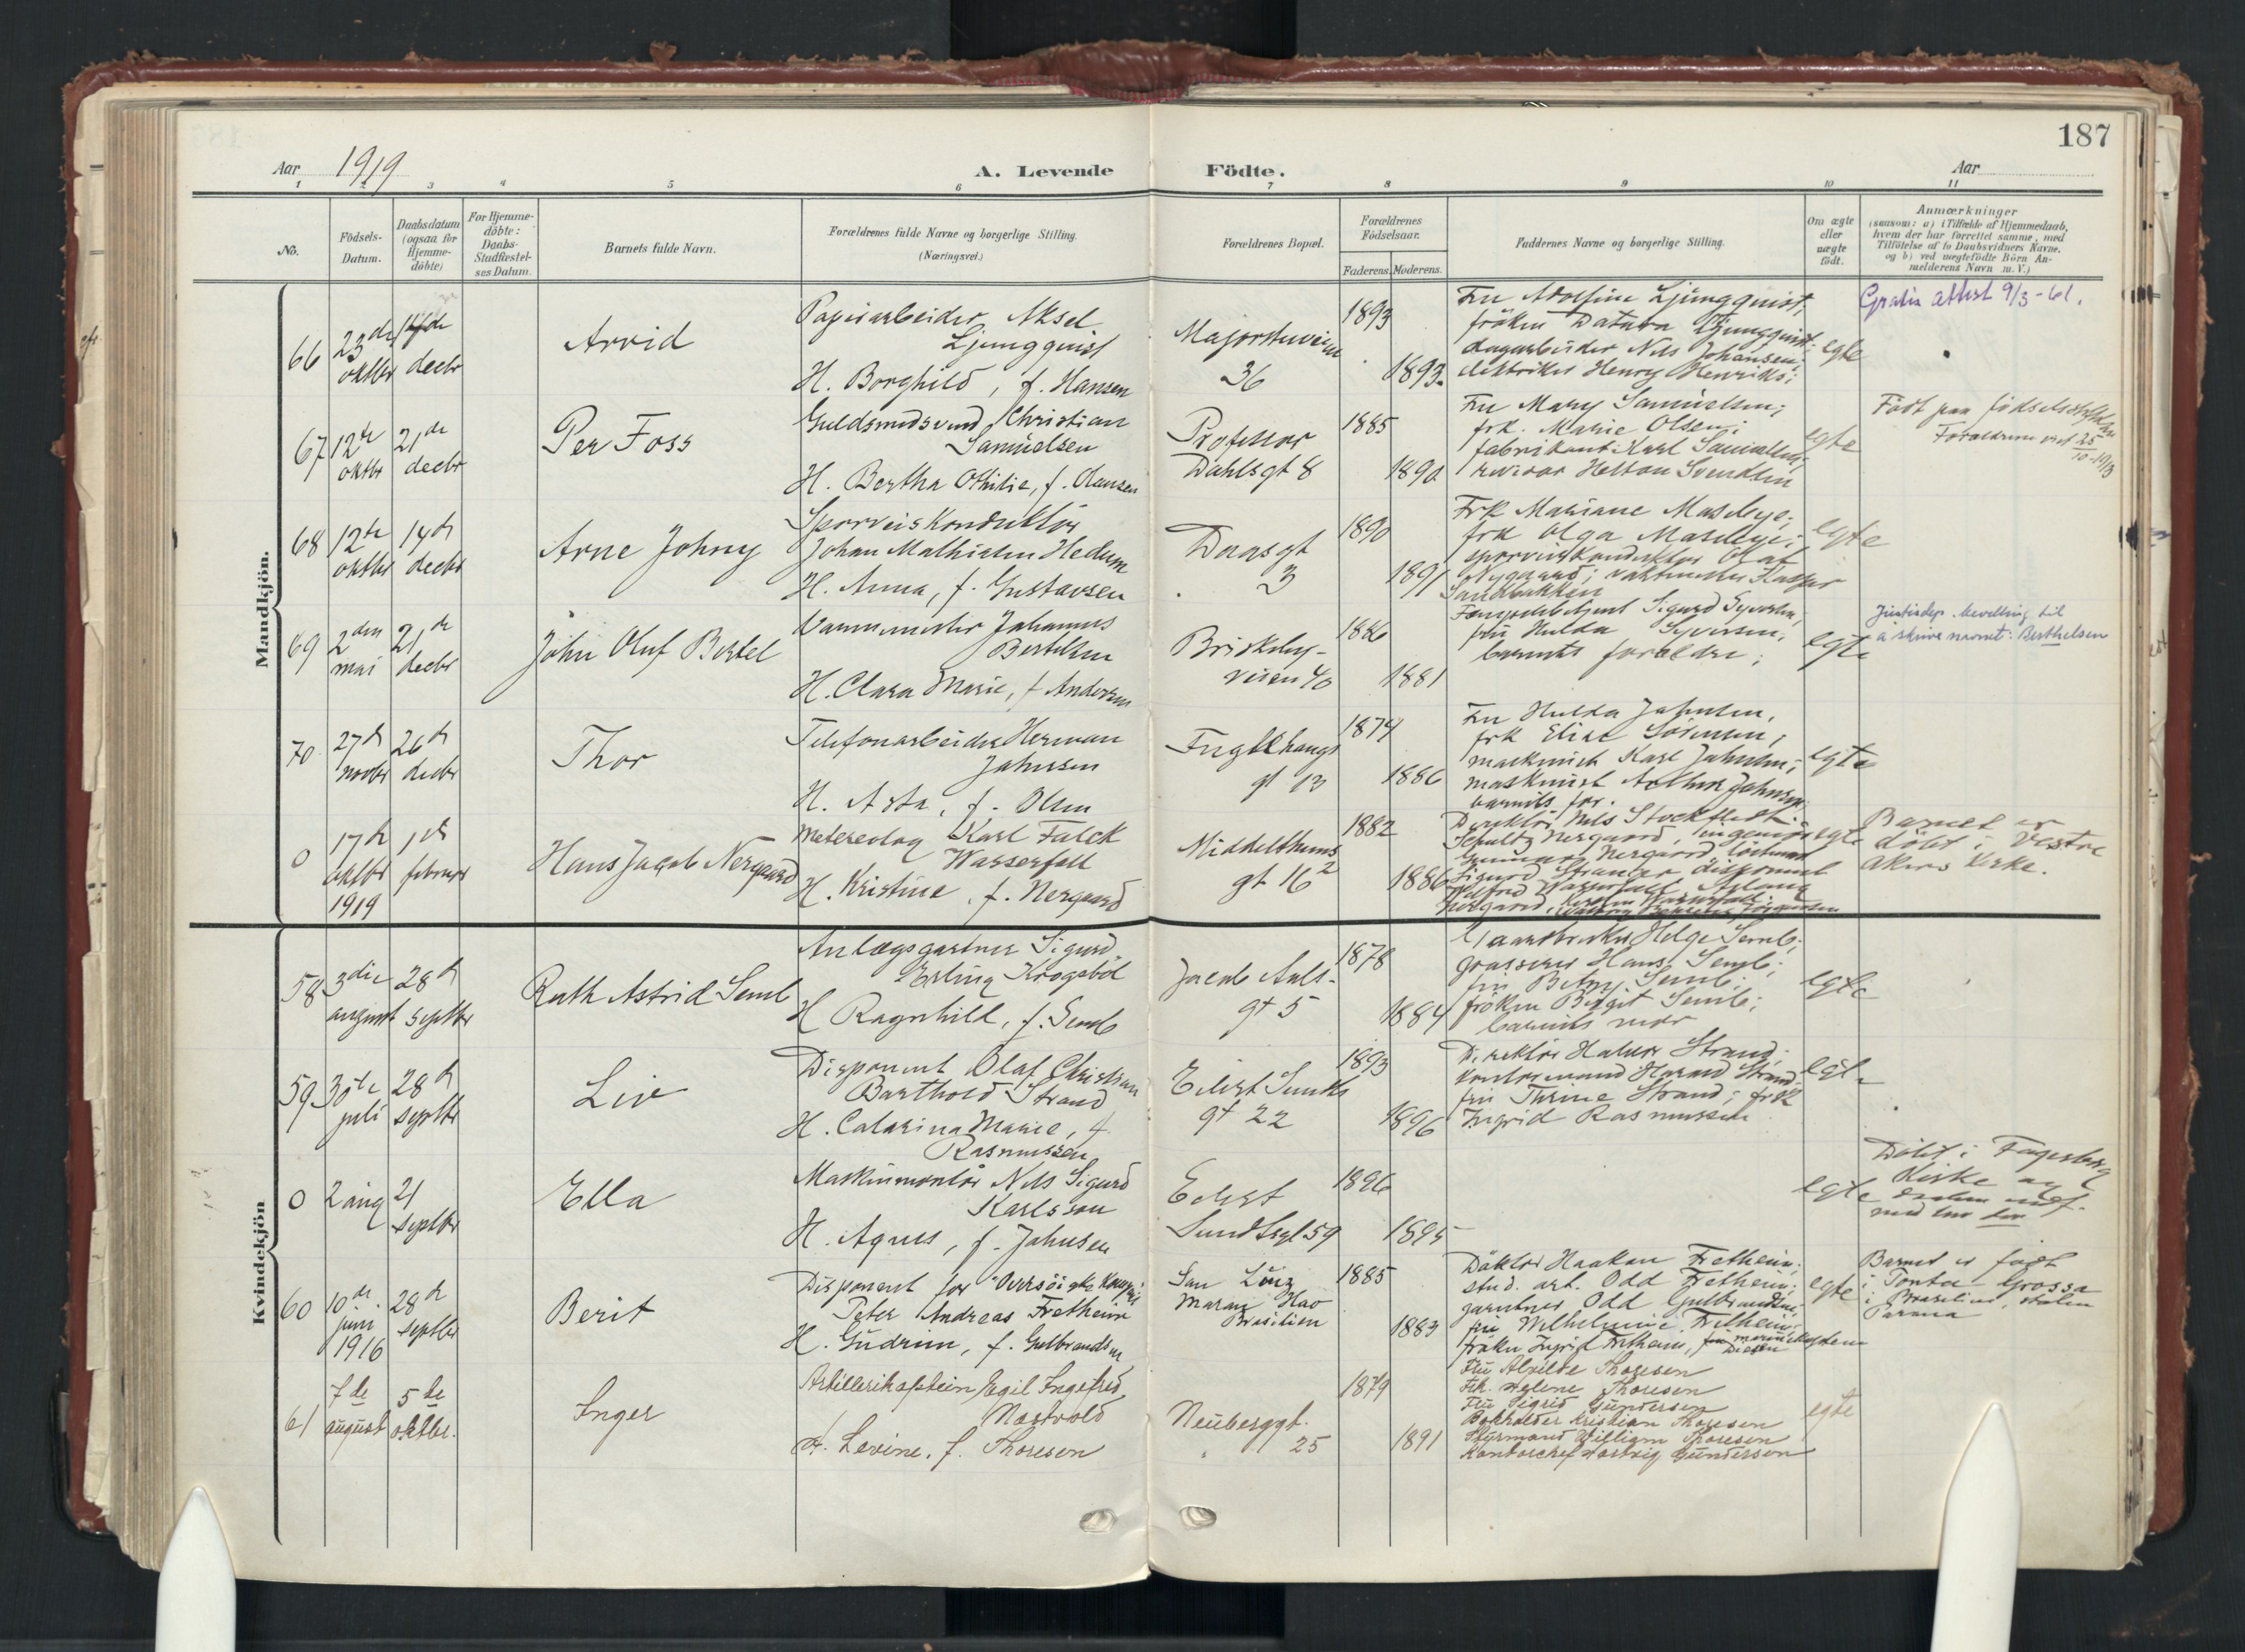 187
Aar 1919
A. Levende Födte.
Aar
1 2 3 4 5 6 7 8 9 10 11
No.
Födsels-
Datum.
Daabsdatum
(ogsaa for
Hjemme-
döbte)
For Hjemme-
döbte:
Daabs-
Stadfæstel-
ses Datum.
Barnets fulde Navn.
Forældrenes fulde Navne og borgerlige Stilling.
(Næringsvei.)
Forældrenes Bopæl.
Forældrenes
Födselsaar.
Faderens. Moderens.
Faddernes Navne og borgerlige Stilling.
Om ægte
eller
uægte
födt.
Anmærkninger
(saasom: a) i Tilfælde af Hjemmedaab,
hvem der har forrettet samme, med
Tilföielse af to Daabsvidners Navne,
og b) ved uægtefödte Börn An-
melderens Navn m. V.)
Mandkjön.
66
23de
oktbr
decbr
Arvid
Papirarbeider Aksel
Ljungquist
H. Borghild, f. Hansen
Majorstuveien
36
1893
1893
Fru Adolfine Ljungquist;
fröken Ljungquist;
Nils Johansen;
elektriker Henry Henriks;
egte
Gratis attest 9/3-61.
67
12te
oktbr
21de
decbr
Per Foss
Guldsmedsvend Christian
Samuelsen
H. Bertha Othilie, f. Olausen
Professor
Dahlsgt 8
1885
1890
Fru Mary Samuelsen;
frk. Marie Olsen;
fabrikant Karl Samuelsen;
revisor Svendsen
egte
Födt paa födselsstiftelsen
Foraldrene viet 25/10-1913
68
12te
oktbr
14de
decbr
Arne Johny
Sporveiskonduktör
Johan Mathisen Hedum
H. Anna, f. Gustavsen
Daasgt
3
1890
1891
Frk Mariane Maseleye;
frk Olga Maseleye;
sporveiskonduktör Olaf
Nygaard; vaktmester Kaspar
Sandbakken
egte
69
2den
mai
21de
decbr
John Oluf Bertel
Varmemester Johannes
Bertelsen
H. Clara Marie, f. Andersen
Briskeby-
veien 40
1886
1881
Sigurd Syversen,
fru Hulda Syversen,
barnets forældre;
egte
Justisdep. bevilling til
å skrive navnet: Berthelsen
70
27de
novbr
26de
decbr
Thor
Telefonarbeider Herman
Johnsen
H. Asta, f. Olsen
Fuglehaugs
gt 13
1874
1886
Fru Hulda Johnsen,
frk Elise Sörensen;
maskinist Karl Johnsen;
maskinist Arthur Johnsen;
barnets far.
egte
0
17de
oktbr
1919
1ste
februar
Hans Jacob Nergaard
Metereolog Karl Falck
Wasserfall
H. Kristine, f. Nergaard
Middelthuns
gt 16²
1882
1886
Direktör Nils Stockfleth
Schultz Nergaard, ingeniör
Gunnar Nergaard, löitnant
Sigurd disponent
Wasserfall, Aslaug
Nergaard, Kirsten Wasserfall.
egte
Barnet er
döbt i Vestre
Akers kirke.
Kvindekjön
58
3die
august
28de
septbr
Ruth Astrid Semb
Anlægsgartner Sigurd
Erling Krogsböl
H Ragnhild, f. Semb
Jacob Aals-
gt 5
1878
1884
Gaardbruker Helge Semb;
grosserer Hans Semb;
fru Betzy Semb;
fröken Birgit Semb;
barnets mor
egte
59
30te
juli
28de
septbr
Liv
Disponent Olaf Christian
Barthold Strand
H. Catarina Marie, f.
Rasmussen
Eilert Sundts
gt 22
1893
1896
Direktör Halvor Strand;
kontormand Harald Strand;
fru Thrine Strand; frk
Ingrid Rasmussen
egte
0
2 aug
21
septbr
Ella
Maskinmontör Nils Sigurd
Karlsson
H. Agnes, f. Johnsen
Eilert
Sundtsgt 59
1896
1895
egte
Döbt i Fagerborg
kirke
60
10de
juni
1916
28de
septbr
Berit
Disponent for Oversöiske Kompani
Peter Andreas Fretheim
H. Gudrun, f. Gulbrandsen
San Luiz
Maran Hao
Brasilien
1885
1883
Doktor Haakon Fretheim;
stud. art. Odd Fretheim;
gartner Odd Gulbrandsen;
fru Wilhelmine Fretheim;
fröken Ingrid Fretheim,
egte
Barnet er födt
i Ponta Grossa
i Brasilien, staten
Parana
61
7de
august
5te
oktbr.
Inger
Artillerikaptein Egil Ingefred
Nöstvold
H. Levine, f. Thoresen
Neuberggt.
25
1879
1891
Fru Alvilde Thoresen
Frk. Helene Thoresen
Fru Sigrid Gundersen
Bokholder Kristian Thoresen
Styrmand William Thoresen
Kontorchef Hartvig Gundersen
egte